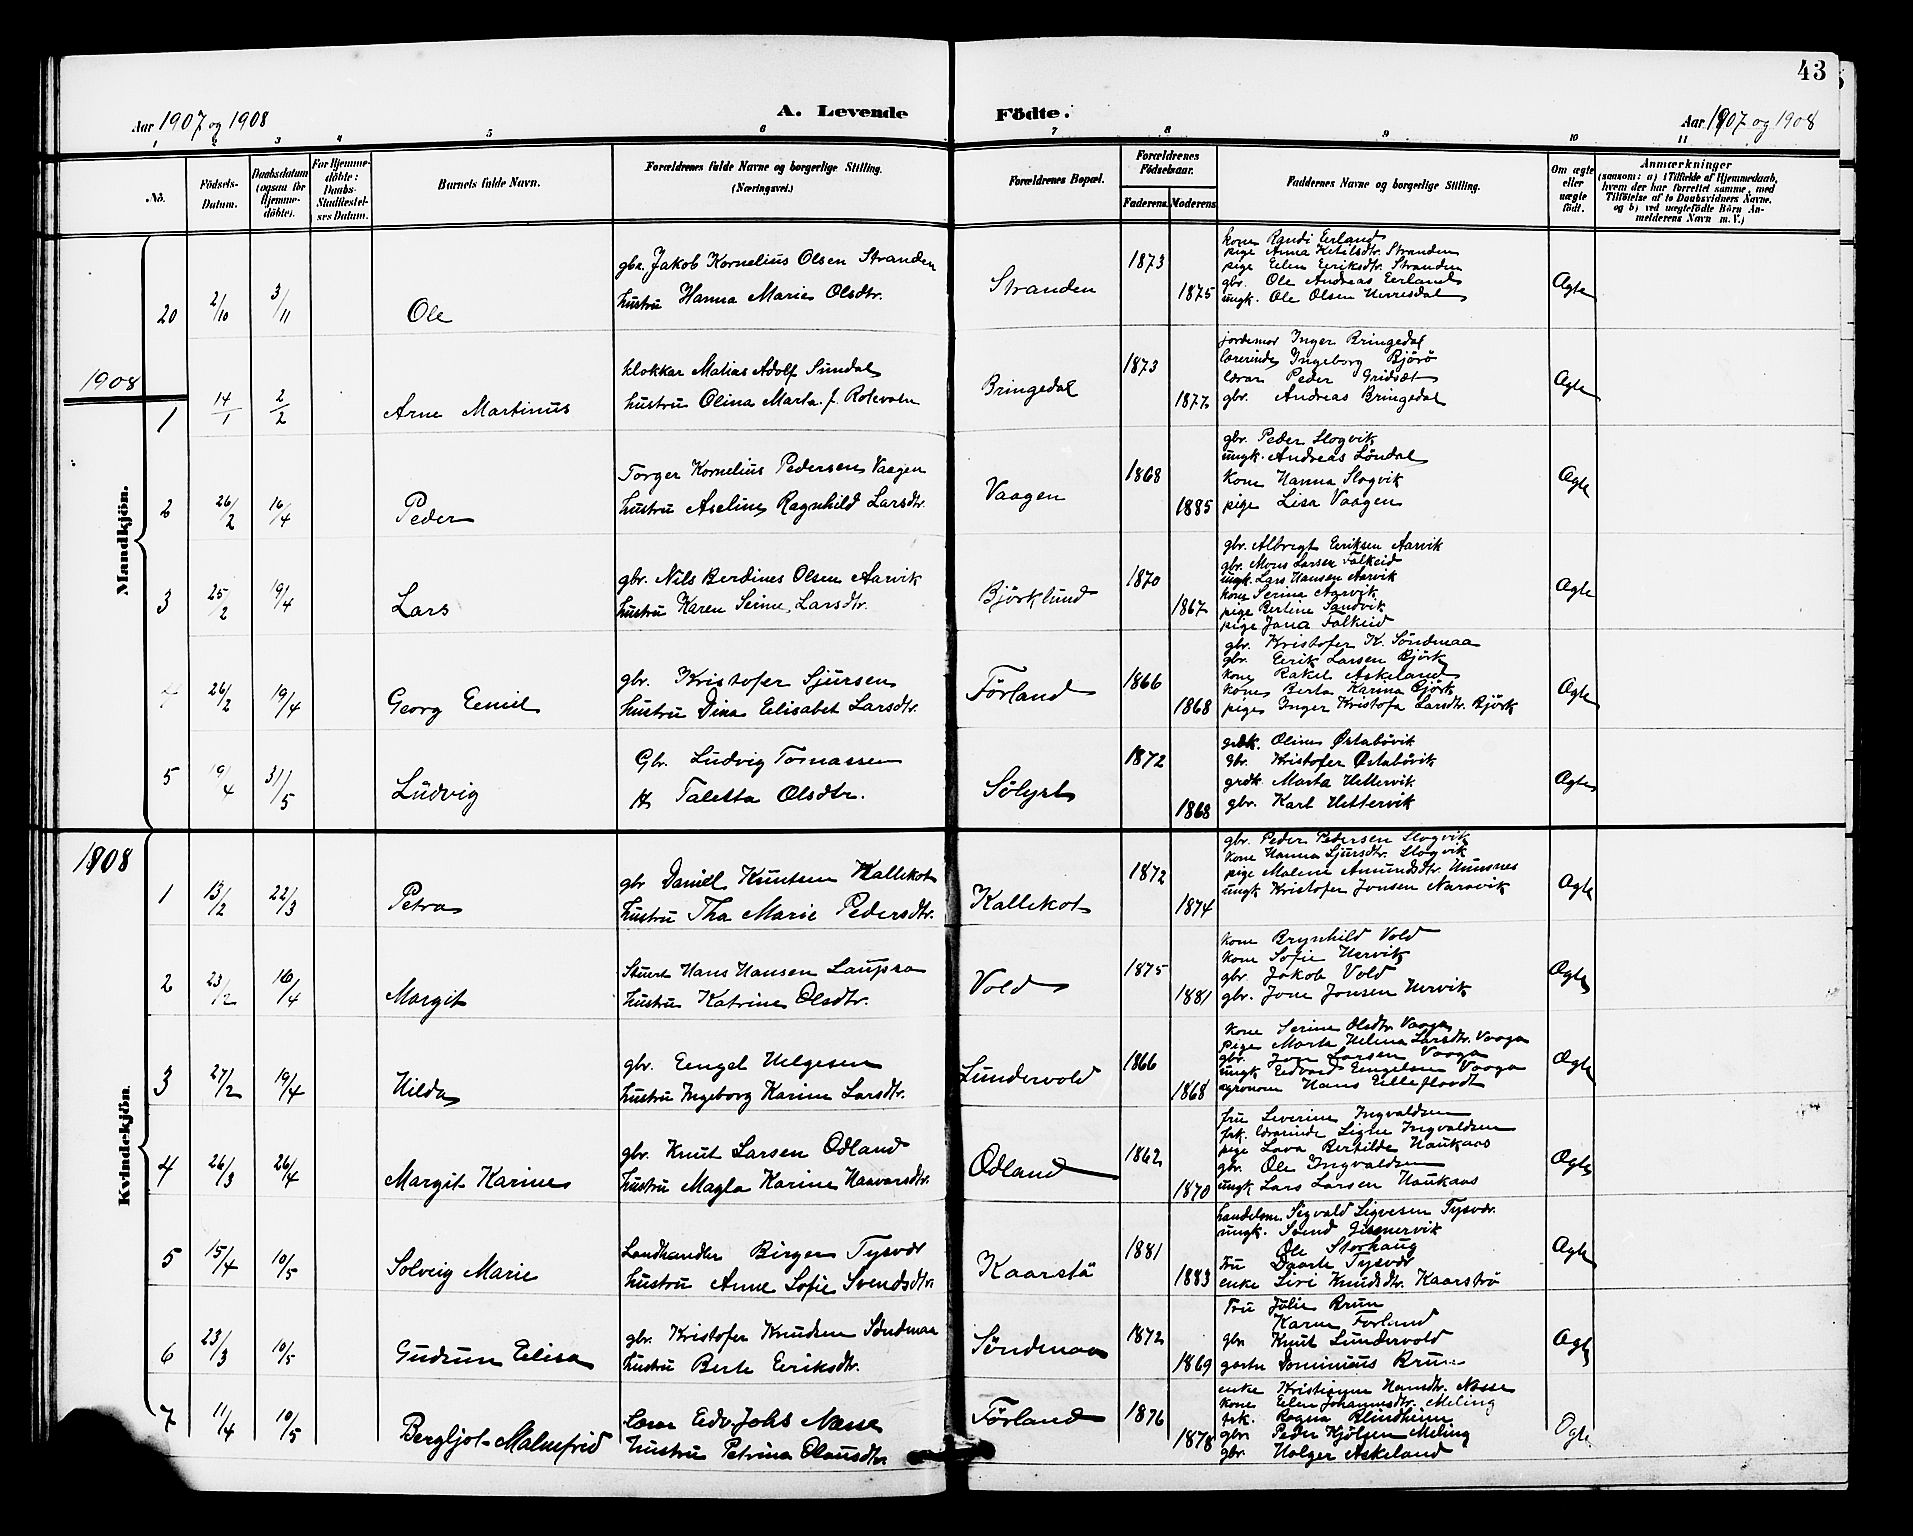 43
Aar 1907 og 1908
A. Levende Födte.
Aar 1907 og 1908
1 2 3 4 5 6 7 8 9 10 11
No.
Födsels-Datum.
Daabsdatum (ogsaa for Hjemme-döbte).
For Hjemme-döbte: Daabs-Stadfæstel-ses Datum.
Barnets fulde Navn.
Forældrenes fulde Navne og borgerlige Stilling. (Næringsvei.)
Forældrenes Bopæl.
Forældrenes Födselsaar.
Faderens. Moderens.
Faddernes Navne og borgerlige Stilling.
Om ægte eller uægte født.
Anmærkninger
(saasom: a) i Tilfælde af Hjemmedaab, hvem der har forrettet samme, med Tilföielse af to Daabsvidners Navne, og b) ved uægtefödte Börn An-melderens Navn m. V.)
Mandkjön.
20 2/10 3/11 Ole
gbr. Jakob Kornelius Olsen Stranden
hustru Hanna Marie Olsdtr.
Stranden 1873 1875
kone Randi Eerland
pige Anna Ketilsdtr. Stranden
pige Elen Eeriksdtr. Stranden
gbr. Ole Andreas Eerland
ungk. Ole Olsen
Ægte
1908
1 14/1 2/2 Arne Martinus
klokkar Matias Adolf Sundal
hustru Olina Marta f. Rotevatn
Bringedal 1873 1877
jordemor Inger Bringedal
lærerinde Ingeborg Björö
lærar Peder Gridsæt
gbr. Andreas Bringedal
Ægte
2 26/2 16/4 Peder
Torger Kornelius Pedersen Vaagen
hustru Aseline Ragnhild Larsdtr.
Vaagen 1868 1885
gbr. Peder Slogvik
ungk. Andreas Löndal
kone Hanna Slogvik
pige Lisa Vaagen
Ægte
3 25/2 19/4 Lars
gbr. Nils Berdines Olsen Aarvik
hustru Karen Serine Larsdtr.
Björklund 1870 1867
gbr. Albregt Eeriksen Aarvik
gbr. Mons Larsen Falkeid
ungk. Lars Hansen Aarvik
kone Serina Aarvik
pige Bertine Sandvik
pige Jana Falkeid
Ægte
4 26/2 19/4 Georg Eemil
gbr. Kristofer Sjursen
hustru Dina Eelisabet Larsdtr.
Förland 1866 1868
gbr. Kristofer K. Söndenaa
gbr. Eerik Larsen Björk
kone Rakel Askeland
kone Berta Karina Björk
pige Inger Kristofa Larsdtr. Björk
Ægte
5 19/4 31/5 Ludvig
Gbr. Ludvig Tomassen
H. Taletta Olsdtr.
Sölyst 1872 1868
grdk. Oline Østabövik
Gbr. Kristofer Østabövik
grdk. Marta Hettervik
gbr. Karl Hettervik
Ægte
1908
Kvindekjön
1 13/2 22/3 Petra
gbr Daniel Knutsen Kallekot
hustru Tha Marie Pedersdtr.
Kallekot 1872 1874
gbr. Peder Pedersen Slogvik
kone Hanna Sjursdtr. Slogvik
pige Malene Amundsdtr.
ungk Kristofer Jonsen Naravik
Ægte
2 23/2 16/4 Margit
Stuert Hans Hansen Laupsa
hustru Katrine Olsdtr.
Vold 1875 1881
kone Brynhild Vold
kone Sofie Hervik
gbr. Jakob Vold
gbr. Jone Jonsen Hervik
Ægte
3 27/2 19/4 Hilda
gbr. Eengel Helgesen
hustru Ingeborg Karine Larsdtr.
Lundervold 1866 1868
kone Serine Olsdtr Vaaga
pige Marta Helena Larsdtr. Vaaga
gbr. Jon Larsen Vaaga
ungk Eedvard Eengelsen Vaaga
agronom Hans
Ægte
4 26/3 26/4 Margit Karine
gbr. Knut Larsen Ødland
hustru Magla Karine Haavarsdtr.
Ødland 1862 1870
fru Severine Ingvaldsen
frk. lærarinde Signe Ingvaldsen
pige Lava Bertilde Haukaas
gbr. Ole Ingvaldsen
ungk Lars Larsen Haukaas
Ægte
5 15/4 10/5 Solveig Marie
Landhandler Birger Tysvær
hustru Anne Sofie Svendsdtr.
Kaarstø 1881 1883
handelsm. Sigvald Sigvesen Tysvær.
ungk. Svend
Ole Storhaug
Fru Daarte Tysvær
enke Siri Knudsdtr. Kaarstø
Ægte
6 23/3 10/5 Gudrun Eelisa
gbr. Kristofer Knudsen Söndenaa
hustru Berte Eeriksdtr.
Söndenaa 1872 1869
Fru Julie Brun
Karen Førland
gbr Knut Lundervold
garta Dominicus Brun
Ægte
7 11/4 10/5 Bergljot Malmfrid
Lærar Edv. Johs Nesse
hustru Petrina Olausdtr
Förland 1876 1878
enke Kristianne Hansdtr. Nesse
kone Elen Johannesdtr. Meling
frk. Ragna Blindheim
gbr Peder Kjölsen Meling
gbr Holger Askeland
Ægte